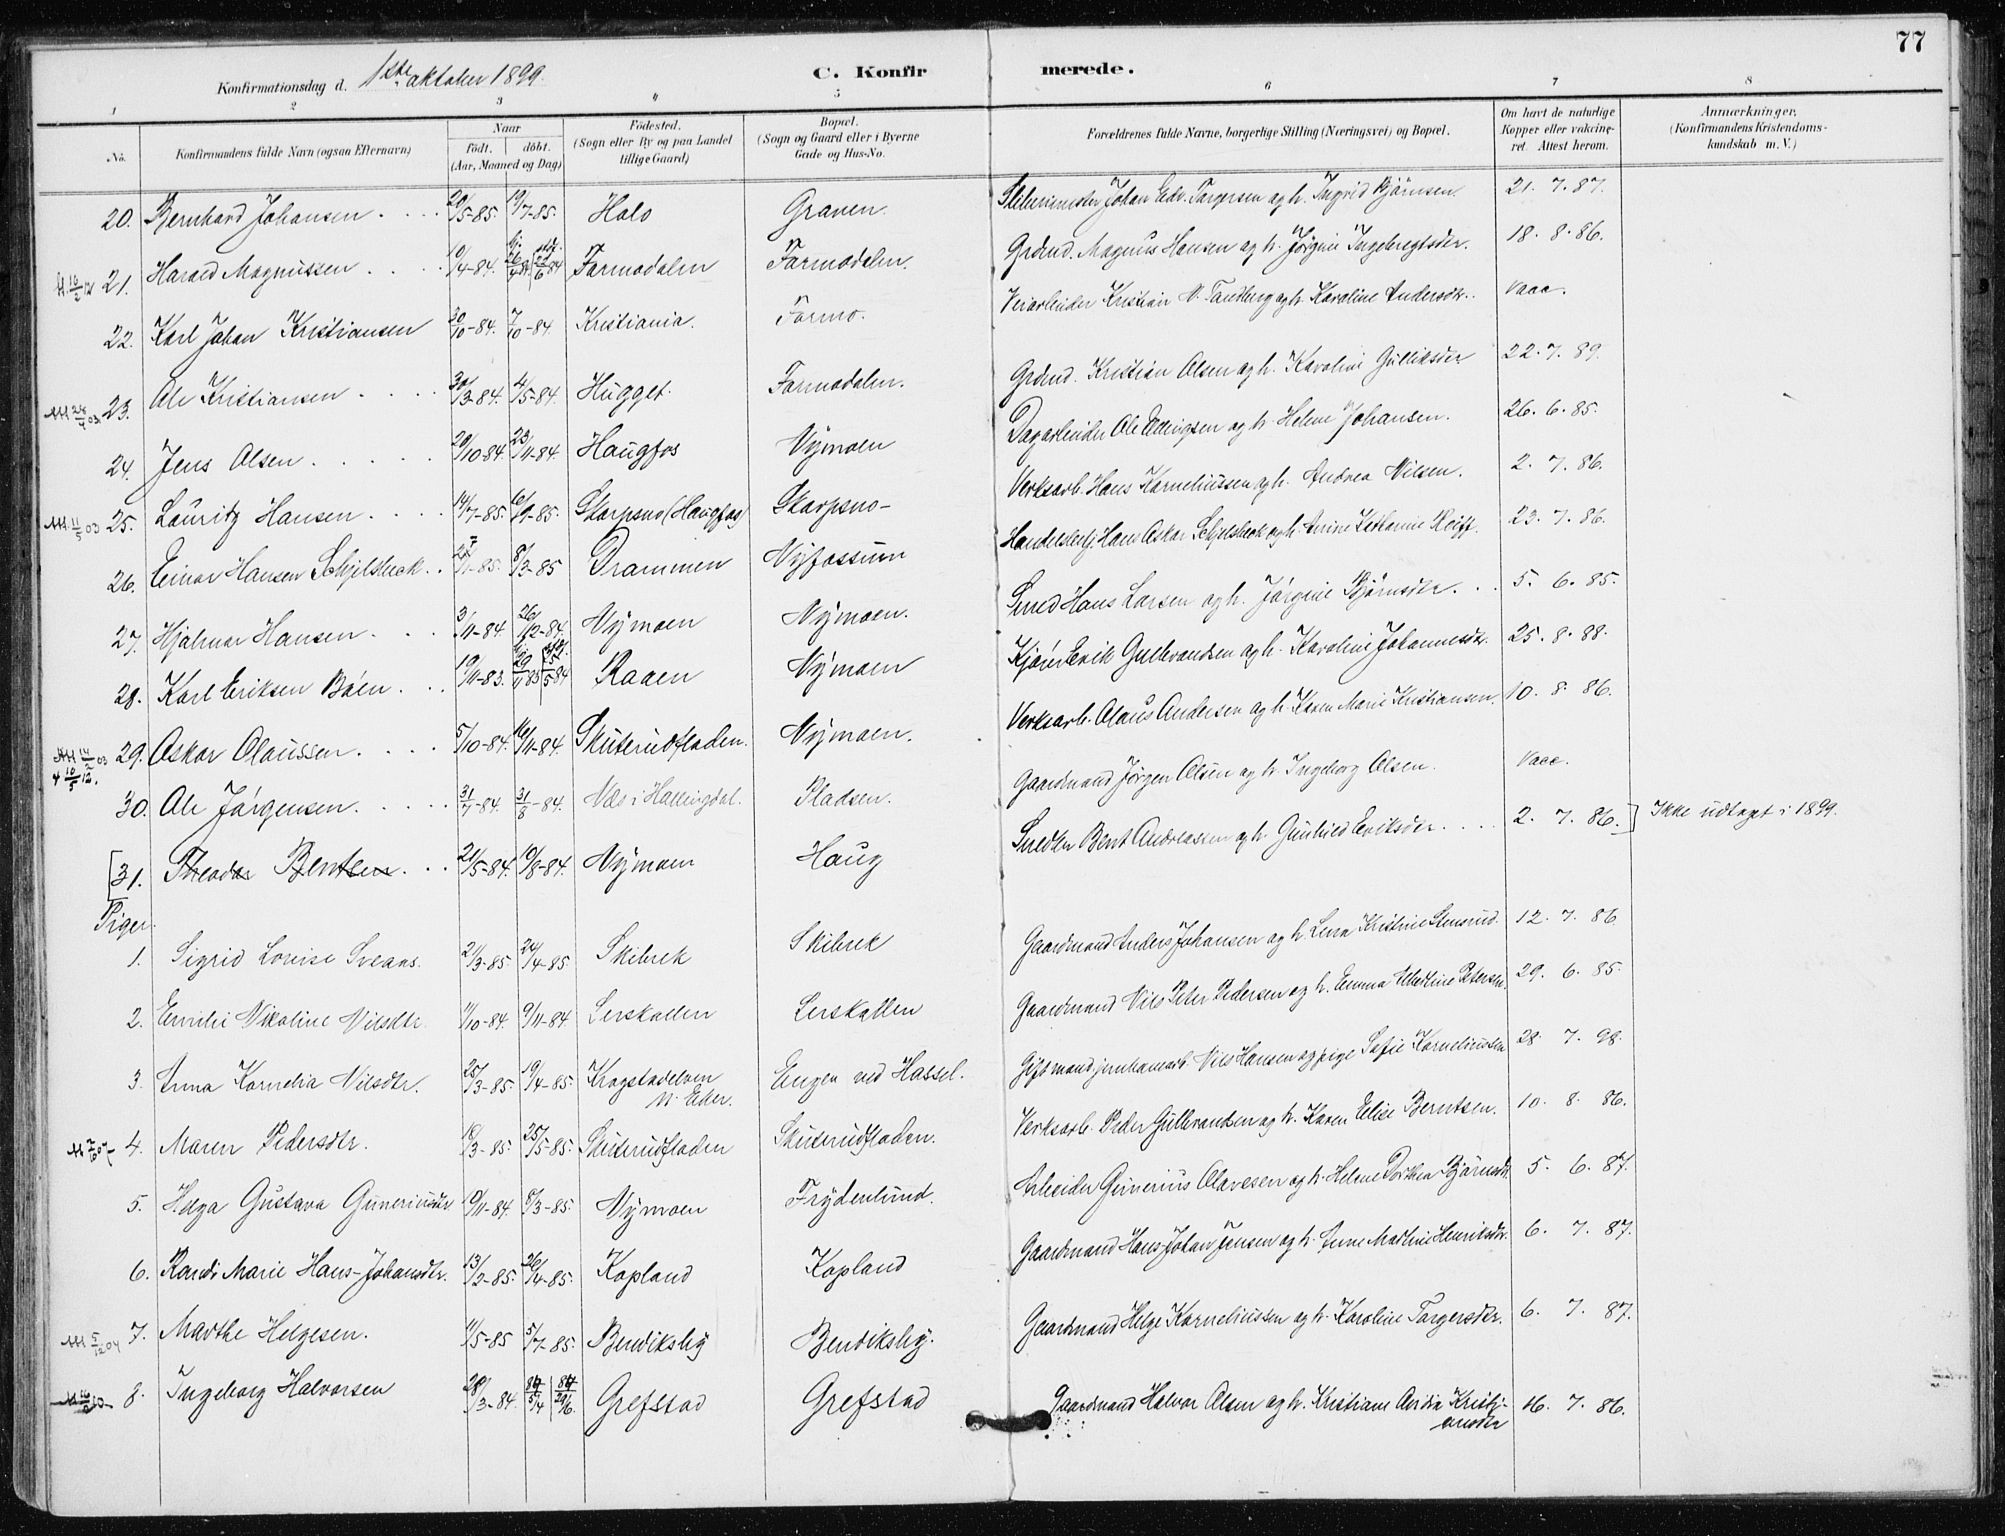 77
Konfirmationsdag d. 1ste oktober 1899.
C. Konfirmerede.
1 2 3 4 5 6 7 8
No. Konfirmandens fulde Navn (ogsaa Efternavn) Naar födt. döbt. (Aar, Maaned og Dag) Födested. (Sogn eller By og paa Landet tillige Gaard) Bopæl. (Sogn og Gaard eller i Byerne Gade og Hus-No. Forældrenes fulde Navne, borgerlige Stilling (Næringsvei) og Bopæl. Om havt de naturlige Kopper eller vakcineret. Attest herom. Anmærkninger. (Konfirmandens Kristendomskundskab m. V.)
20. Bernhard Johansen 20/5-85. 19/7-85. Holo Graven. Johan Edv. Torgersen og h. Ingrid Bjørnsen. 21. 7. 87.
21. Harald Magnussen 10/4-84. Formodalen Formodalen. Grdmd. Magnus Hansen og h. Jørgine Ingebregtsdtr. 18. 8. 86.
22. Karl Johan Kristiansen 20/10-84. 7/10-84 Kristiania. Formo. Veiarbeider Kristian N. Tandberg og h. Karoline Andersdtr. Vacc.
23. Ole Kristiansen 30/3-84. 4/5-84. Hugget. Formodalen. Grdmd. Kristian Olsen og h. Karoline Gulliksdtr 22. 7. 89.
24. Jens Olsen 20/10-84. 23/11-84. Haugfos Nymoen Dagarbeider Ole Ellingsen og h. Helene Johansen. 26. 6. 85.
25. Lauritz Hansen 14/7-85. Skarpsno (Haugfos) Skarpsno- Verksarb. Hans Korneliussen og h. Andrea Nilsen. 2. 7. 86.
26. Einar Hansen Schjelsbek 8/3-85 Drammen Nyfossum Handelsbetj. Hans Oskar Schjelsbek og h. Anine Katharine Reiff. 23. 7. 86.
27. Hjalmar Hansen 3/11-84. 26/12-84. Nymoen Nymoen. Smed Hans Larsen og h. Jørgine Bjørnsdtr. 5. 6. 85.
28. Karl Eriksen Böen 19/11-83. Raaen Nymoen Erik Gulbrandsen og h. Karoline Johannesdtr. 25. 8. 88.
29. Oskar Olaussen 5/10-84. 16/11-84. Skuterudfladen. Nymoen. Verksarb. Olaus Andersen og h. Karen Marie Kristiansen. 10. 8. 86.
30. Ole Jörgensen. 31/7-84. 31/8-84. Næs i Hallingdal. Pladsen. Gaardmand Jörgen Olsen og h. Ingeborg Olsen. Vacc.
[31. Theodor Bentsen 21/5-84. 10/8-84. Nymoen Haug Smedm Bent Andreassen og h. Gunhild Eriksdtr. 2. 7. 86.] Ikke udtaget i 1899.
Piger.
1. Sigrid Lovise Sveaas. 21/3-85. 24/4-85. Skibrek Skibrek Gaardmand Anders Johansen og h. Lena Kristine Stensrud. 12. 7. 86
2. Emilie Nikoline Nilsdtr. 11/10-84. 9/11-84. Lerskallen Lerskallen Gaardmand Nils Peter Pedersen og h. Emma Petersen. 29. 6. 85.
3. Anna Kornelia Nilsdtr. 25/3-85. 19/4-85. Krogstadelven N. Eker. Engen ved Hassel. Gift mand jernbanearb. Nils Hansen og pige Sofie Korneliussen 28. 7. 98.
4. Maren Pedersdtr. 10/3-85. 25/5-85. Skuterudfladen Skuterudfladen. Verksarb. Peder Gulbrandsen og h. Karen Elise Berntsen. 10. 8. 86.
5. Helga Gustava Guneriusdtr 10/11-84. 8/3-85. Nymoen Frydenlund. Arbeider Gunerius Olavesen og h. Helene Dorthea Bjørnsdtr 5. 6. 87.
6. Randi Marie Hans-Johansdtr. 13/2-85. 26/4-85. Kopland Kopland Gaardmand Hans Johan Jensen og h. Anne Mathine Henriksdtr. 6. 7. 87.
7. Marthe Helgesen. 11/5-85 5/7-85. Bendiksby Bendiksby. Gaardmand Helge Korneliussen og h. Karoline Torgersdtr. 6. 7. 87.
8. Ingeborg Halvorsen 28/3-84. Grefstad Grefstad Gaardmand Halvor Olsen og h. Kristiane Kristiansdtr 16. 7. 86.